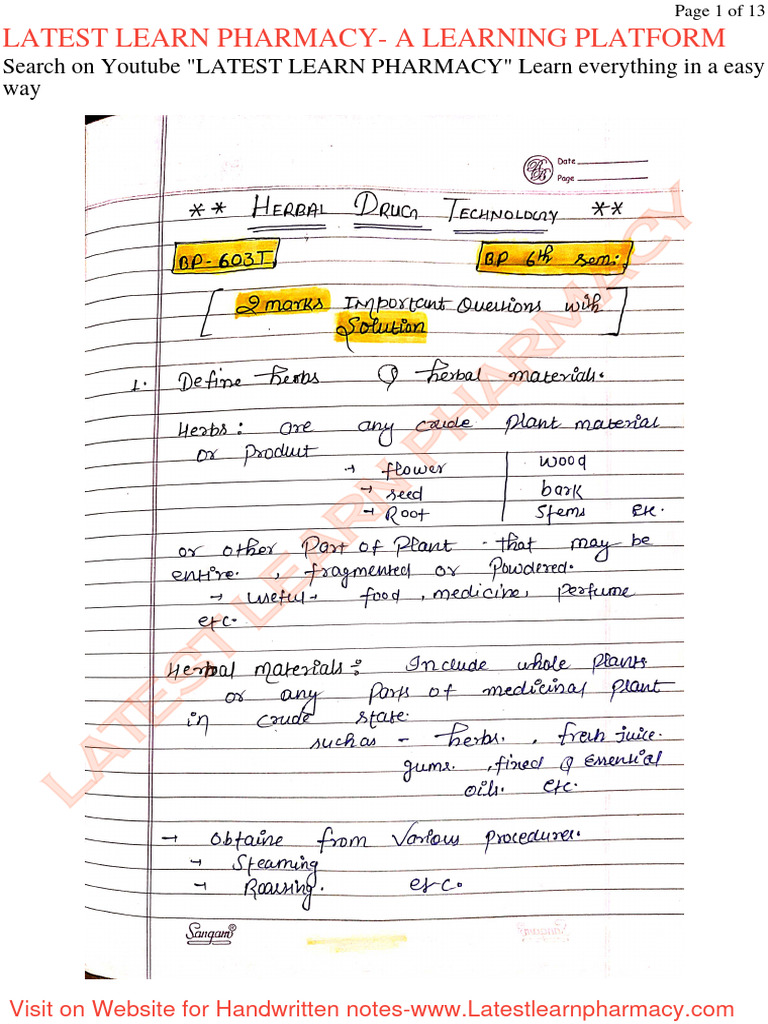 Page 1 of 13
LATEST LEARN PHARMACY- A LEARNING PLATFORM
Search on Youtube "LATEST LEARN PHARMACY" Learn everything in a easy
way
Date
Page
** HERBAL DRUG TECHNOLOGY **
BP-603T BP 6th sem:
[2 marks Important Questions with
Solution]
1. Define herbs & herbal materials.
Herbs: are any crude plant material
or product
→ flower | wood
→ seed | bark
→ Root | Stems etc.
or other Part of Plant - that may be
entire. , fragmented or Powdered.
→ useful → food , medicine, perfume
etc.
Herbal materials: Include whole plants
or any parts of medicinal plant
in crude state.
such as - herbs. , fresh juice.
gums. , fixed & essential
oils. etc.
→ Obtaine from various procedures.
→ Steaming
→ Roasting. etc.
Sangam
LATEST LEARN PHARMACY
Visit on Website for Handwritten notes-www.Latestlearnpharmacy.com